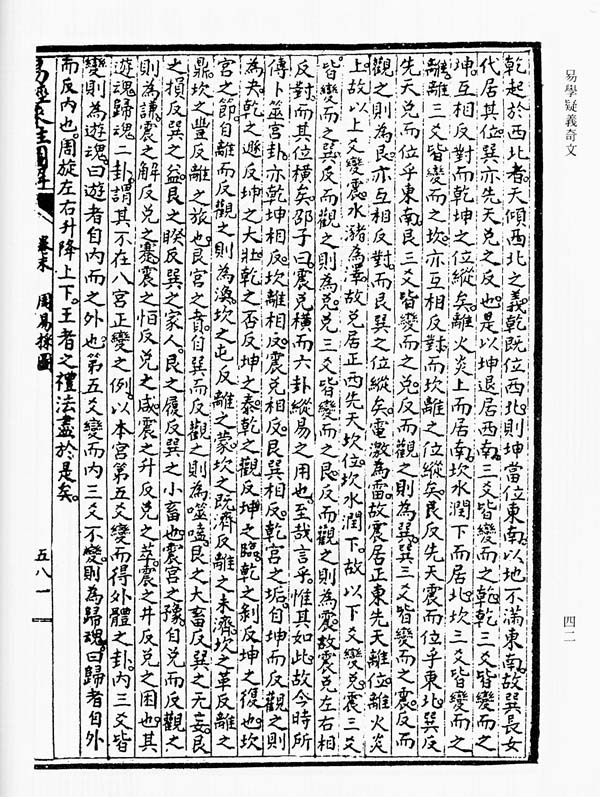 易學疑義奇文
四二
乾起於西北者天傾西北之義乾既位西北則坤當位東南以地不滿東南故巽長女
代居其位巽亦先天兌之反也是以坤退居西南三爻皆變而之乾乾三爻皆變而之
坤互相反對而乾坤之位縱矣離火炎上而居南坎水潤下而居北坎三爻皆變而之
離離三爻皆變而之坎亦互相反對而坎離之位縱矣艮反先天震而位乎東北巽反
先天兌而位乎東南艮三爻皆變而之兌反而觀之則為巽巽三爻皆變而之震反而
觀之則為艮亦互相反對而艮巽之位縱矣電激為雷故震居正東先天離位離火炎
上故以上爻變震水瀦為澤故兌居正西先天坎位坎水潤下故以下爻變兌震三爻
皆變而之巽反而觀之則為兌兌三爻皆變而之艮反而觀之則為震故震兌左右相
反對而其位橫矣邵子曰震兌橫而六卦縱易之用也至哉言乎惟其如此故今時所
傳卜筮宮卦亦乾坤相反坎離相反震兌相反艮巽相反乾宮之姤自坤而反觀之則
為夬乾之遯反坤之大壯乾之否反坤之泰乾之觀反坤之臨乾之剝反坤之復也坎
宮之節自離而反觀之則為渙坎之屯反離之蒙坎之既濟反離之未濟坎之革反離之
鼎坎之豐反離之旅也艮宮之賁自巽而反觀之則為噬嗑艮之大畜反巽之无妄艮
之損反巽之益艮之睽反巽之家人艮之履反巽之小畜也震宮之豫自兌而反觀之
則為謙震之解反兌之蹇震之恒反兌之咸震之升反兌之萃震之井反兌之困也其
遊魂歸魂二卦謂其不在八宮正變之例以本宮第五爻變而得外體之卦內三爻皆
變則為遊魂曰遊者自內而之外也第五爻變而內三爻不變則為歸魂曰歸者自外
而反內也周旋左右升降上下王者之禮法盡於是矣
易經來註圖解
卷末 周易採圖
五八一